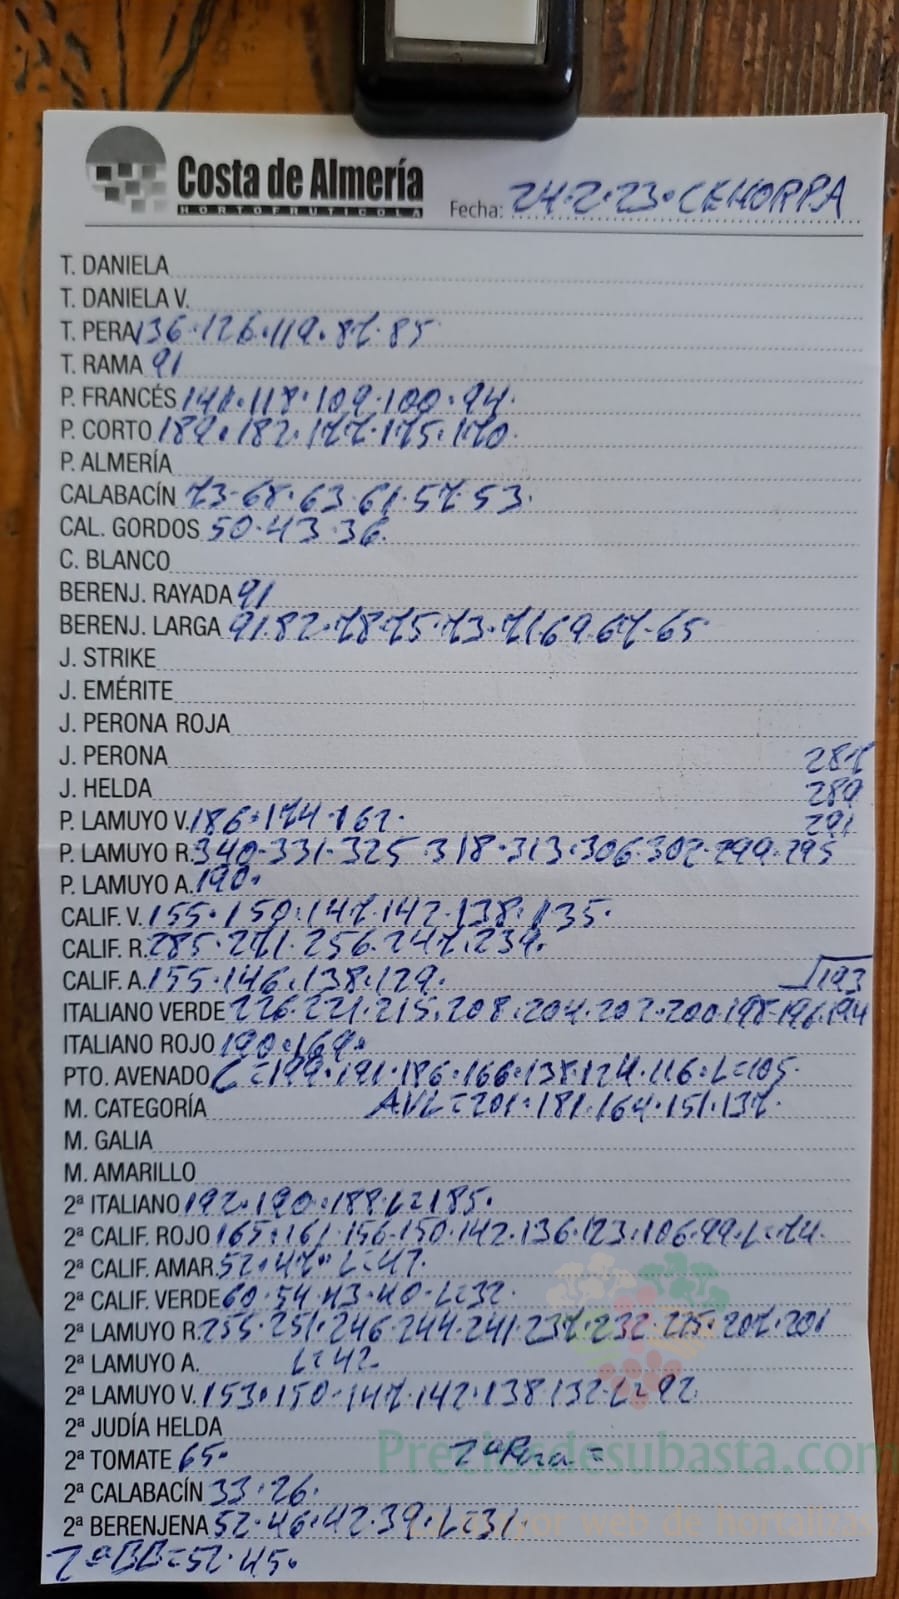 Costa de Almería
HORTOFRUTICOLA
Fecha: 24.2.23. CEHORPA
T. DANIELA
T. DANIELA V.
T. PERA 136.126.119.87.85
T. RAMA 91
P. FRANCÉS 141.118.109.100.94.
P. CORTO 189.182.177.175.170.
P. ALMERÍA
CALABACÍN 73-68.63.61.57.53.
CAL. GORDOS 50.43.36.
C. BLANCO
BERENJ. RAYADA 91
BERENJ. LARGA 91.82.78.75.73.71.69.67-65
J. STRIKE
J. EMÉRITE
J. PERONA ROJA
J. PERONA 287
J. HELDA 289
P. LAMUYO V. 186.174.162. 291
P. LAMUYO R. 340-331-325 318.313.306.302.299.295
P. LAMUYO A. 190.
CALIF. V. 155.150.147.142.138.135.
CALIF. R. 285.271.256.247.239.
CALIF. A. 155.146.138.129. 193
ITALIANO VERDE 226.221.215.208.204.202.200.198-196.194
ITALIANO ROJO 190.169.
PTO. AVENADO C=199.191.186.166.138.124.116.L=105.
M. CATEGORÍA AVL=201.181.164.151.137.
M. GALIA
M. AMARILLO
2ª ITALIANO 192.190.188.L=185.
2ª CALIF. ROJO 165.161.156.150.142.136.123.106.99.L=74.
2ª CALIF. AMAR. 52.47. L=47.
2ª CALIF. VERDE 60.54.43.40.L=32.
2ª LAMUYO R. 255.251.246.244.241.237.232.225.207.201
2ª LAMUYO A. L=42
2ª LAMUYO V. 153.150-147.142.138.132.L=92.
2ª JUDÍA HELDA
2ª TOMATE 65. 2ª Pera =
Preciosdesubasta.com
2ª CALABACÍN 33.26.
2ª BERENJENA 52.46.42.39.L=31.
web de hortalizas
2ª BB=52.45.